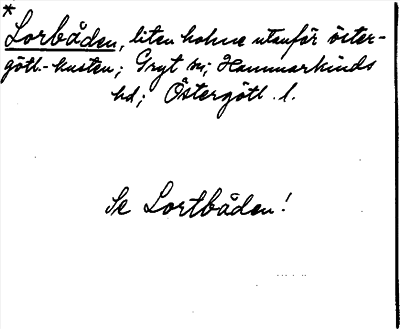 *
Lorbåden, liten holme utanför öster-
götl.-kusten; Gryt sn; Hammarkinds
hd; Östergötl. l.
Se Lortbåden!